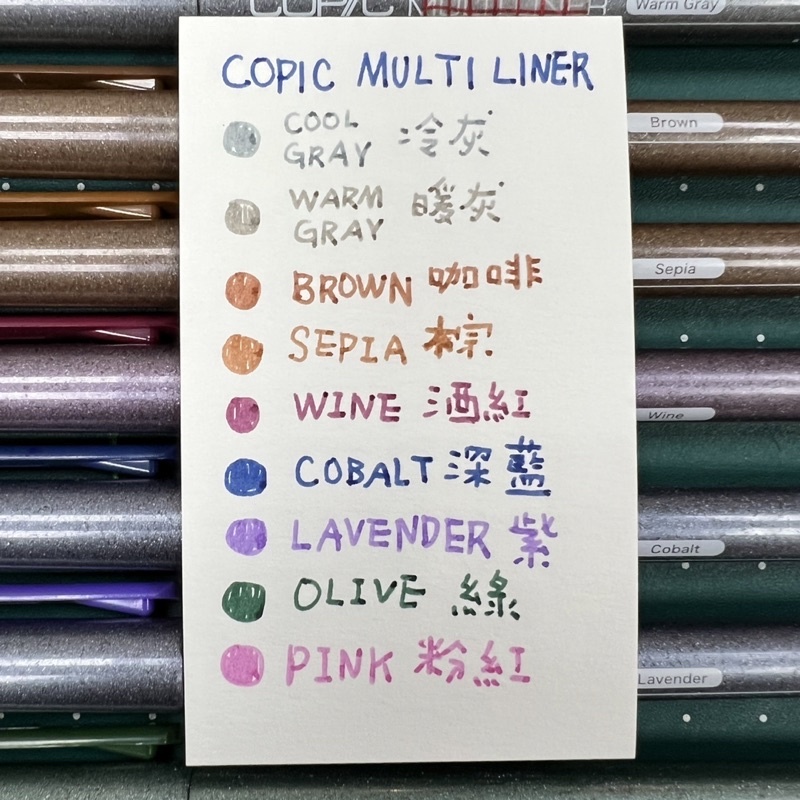 COPIC MULTI LINER
Warm Gray
COPIC MULTI LINER
COOL
GRAY 冷灰
Brown
WARM
GRAY 暖灰
BROWN 咖啡
Sepia
SEPIA 棕
WINE 酒紅
Wine
COBALT 深藍
Cobalt
LAVENDER 紫
OLIVE 綠
PINK 粉紅
Lavender